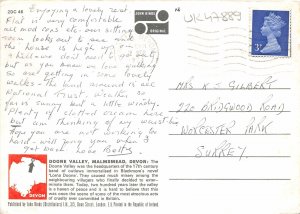 2DC 48
Enjoying a lovely rest
Flat is very comfortable
all mod cons etc. even sitting
room looks out to sea with
the house is high up on
a hill
we don't need to go out
but as you know we love walking
so are getting in some lovely
walks the land around is all
National Trust. Weather so
far is sunny but a little windy.
Plenty of clotted cream here
but am thinking of my waist line
Hope you are not working to
hard - will ring you when I
get home Love Betty
JOHN HINDE
ORIGINAL
UK47889
3P
MRS K S GILBERT
220 BRIDGWOOD ROAD
WORCESTER PARK
SURREY.
DEVON
DOONE VALLEY, MALMSMEAD, DEVON: The
Doone Valley was the headquarters of the 17th century
band of outlaws immortalised in Blackmore's novel
'Lorna Doone'. They caused much misery among the
neighbouring villages who finally decided to exter-
minate them. Today, two hundred years later the valley
is a haven of peace and it is hard to believe that this
was once the scene of some of the most outrageous
cruelty ever perpetrated in Britain.
Published by John Hinde (Distributors) Ltd., Dean Street, London. Printed in the Republic of Ireland